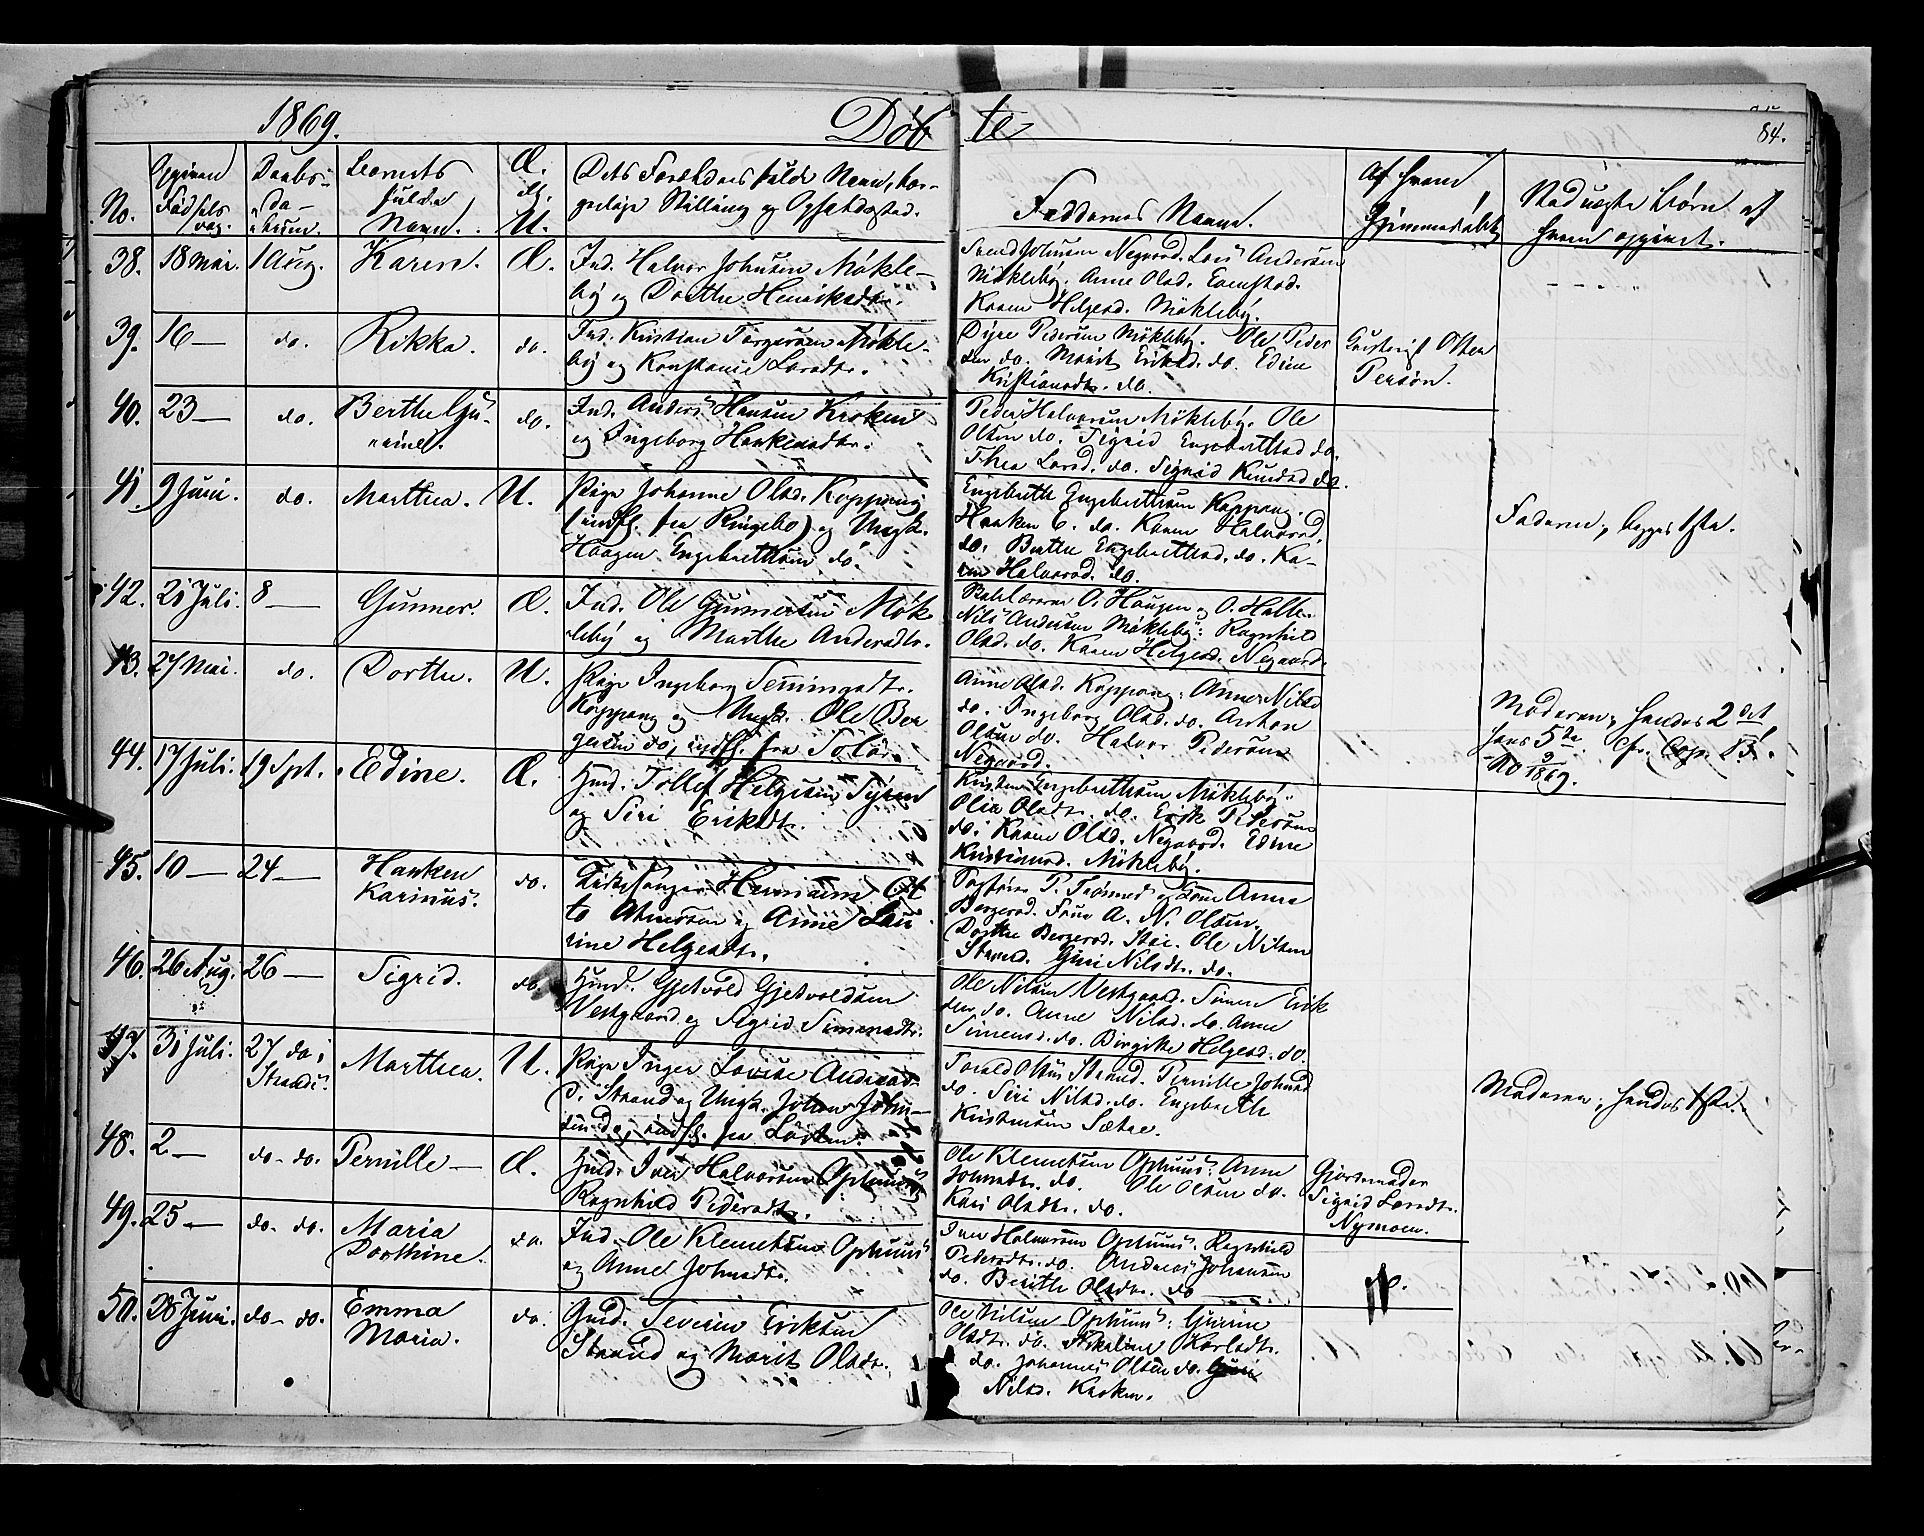 1869.
Døb
te
84.
No.
Opgiven
Fødsels
dag.
Daabs-
da-
tum.
Barnets
fulde
Navn.
Æ.
el.
U.
Dets Forældres fulde Navn, bor-
gerlige Stilling og Opholdssted.
Faddernes Navne.
Af hvem
hjemmedøbt
Ved uægte Børn af
hvem opgivet.
38. 18 Mai. 1 Aug. Karen. Æ.
Ind. Halvor Johnsen Møkle-
by og Dorthe Henriksdtr.
Svend Johnsen Negaard. Lars Andersen
Møkleby. Anne Olsd. Evenstad.
Karen Helgesd. Møkleby.
39. 16 — do. Rikka. do.
Ind. Kristian Torgersen Møkle-
by og Konstanse Larsdtr.
Dyre Pedersen Møkleby. Ole Peder
sen do. Marit Eriksd. do. Edine
Kristiansdtr. do.
Olsen
Person.
40. 23 — do. Berthe Gu-
rine. do.
Ind. Anders Hansen Kroken
og Ingeborg Haakensdtr.
Peder Halvorsen Møkleby. Ole
Olsen do. Sigrid Engebrethsd do.
Thea Larsd. do. Sigrid Knudsd do.
41. 9 Juni. do. Marthea. U.
Pige Johanne Olsd. Koppang
(indfl. fra Ringebo) og Ungk.
Haagen Engebrethsen do.
Engebreth Engebrethsen Koppang.
Haaken E. do. Karen Halvorsd.
do. Berthe Engebrethsd. do. Ka-
ren Halvorsd. do.
Faderen, begges 1ste.
42. 20 Juli. 8 — Gunner. Æ.
Ind. Ole Gunnersen Møk
leby og Marthe Andersdtr.
O. Haugen og O. Halte.
Nils Andersen Møkleby. Ragnhild
Olsd. do. Karen Helgesd. Negaard.
43. 27 Mai. do. Dorthe. U.
Pige Ingeborg Semmingsdtr.
Koppang og Ungk. Ole Ber
gersen do, indfl. fra Solør.
Anne Olsd. Koppang. Anne Nilsd
do. Ingeborg Olsd. do. Anton
Olsen do. Halvor Pedersen
Negaard.
Moderen, hendes 2det
hans 5te. Cfr. Cop.
No 9/1869.
44. 17 Juli. 19 Spt. Edine. Æ.
Husd. Tollef Helgesen
og Siri Eriksdtr.
Kristen Engebrethsen Møkleby.
Olia Olsdtr. do. Erik Pedersen
do. Karen Olsd. Negaard. Edine
Kristiansd. Møkleby.
45. 10 — 24 — Haaken
Karinus. do.
Kirkesanger Herman Ot
to og Anne Lau
rine Helgesdtr.
P. og Anne
Bergersd. Frue A. N. Olsen.
Dorthe Bergersd. Stai. Ole Nilsen
Strand. Guri Nilsdtr. do.
46. 26 Aug. 26 — Sigrid. do.
Husd. Gjetvold Gjetvoldsen
Vestgaard og Sigrid Simensdtr.
Ole Nilsen Vestgaard. Simen Erik
sen do. Anne Nilsd. do. Anne
Simensd. do. Birgitte Helgesd. do.
47. 31 Juli. 27 do i
Strand. Marthea. U.
Pige Inger Lovise Andersd.
Strand og Ungk. Johan John-
sen do, indfl. fra Løiten.
Torald Olsen Strand. Pernille Johnsd
do. Siri Nilsd. do. Engebreth
Kristensen Sætre.
Moderen, hendes 1ste.
48. 2 — do. do. Pernille — Æ.
Husd. Iver Halvorsen Ophuus
Ragnhild Pedersdtr.
Ole Klemetsen Ophuus. Anne
Johnsdtr. do. Ole Olsen do.
Kari Olsdtr. do.
Gjordemoder
Sigrid Larsdtr.
Nymoen.
49. 25 — do. do. Maria
Dorthine. do.
Ind. Ole Klemetsen Ophuus
og Anne Johnsdtr.
Iver Halvorsen Ophuus. Ragnhild
Pedersdtr. do. Andreas Johansen
do. Berithe Olsdtr. do
do.
50. 28 Juni. do. do. Emma
Maria. do.
Gmd. Severin Eriksen
Strand og Marit Olsdtr.
Ole Nilsen Ophuus. Gurine
Olsdtr. do. Nikoline Karlsdtr.
do. Johannes Olsen do. Guri
Nilsd. Kroken.